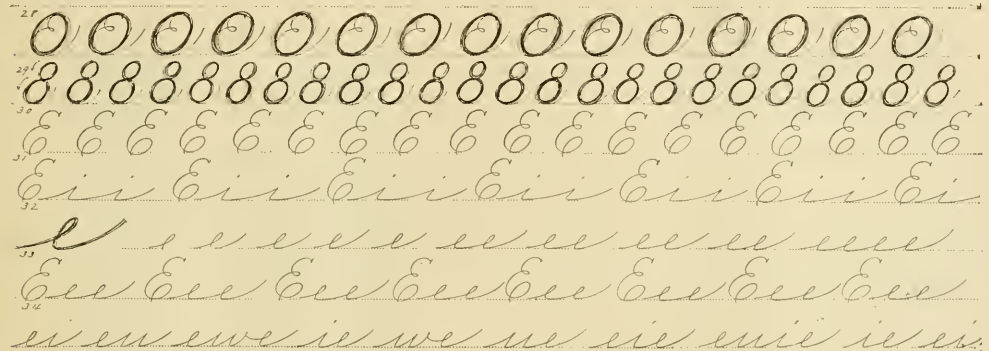 28 O O O O O O O O O O O O O O O
29 8 8 8 8 8 8 8 8 8 8 8 8 8 8 8 8 8 8 8 8 8 8 8 8
30 E E E E E E E E E E E E E E E E E E
31 Eii Eii Eii Eii Eii Eii Ei
32 e e e e e e e ee ee ee ee eeee
33 Eee Eee Eee Eee Eee Eee Eee Eee
34 ei eu ewe ie we ue eie euie ie ei